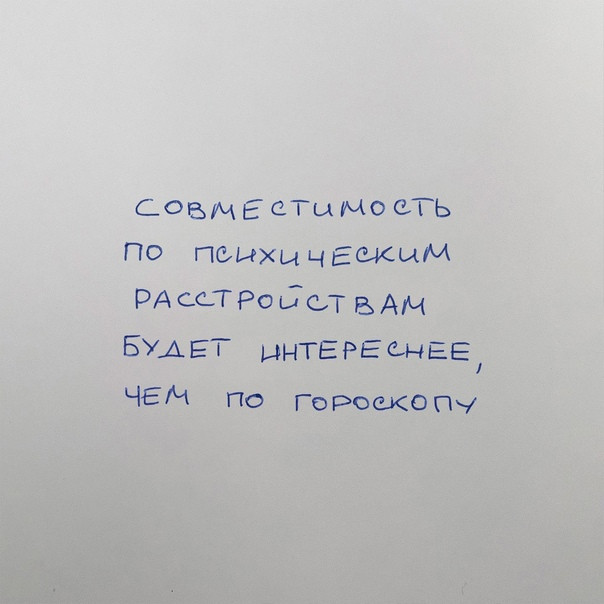 СОВМЕСТИМОСТЬ
ПО ПСИХИЧЕСКИМ
РАССТРОЙСТВАМ
БУДЕТ ИНТЕРЕСНЕЕ,
ЧЕМ ПО ГОРОСКОПУ